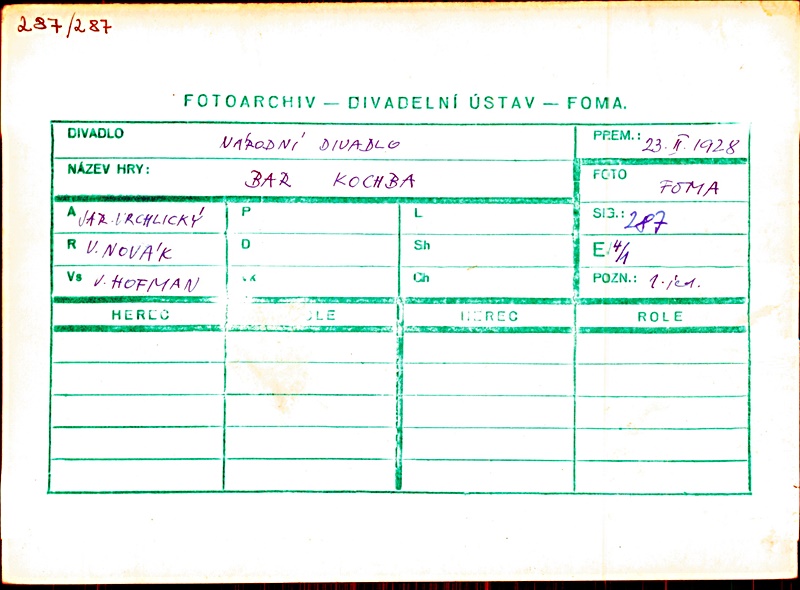 287/287
FOTOARCHIV — DIVADELNÍ ÚSTAV — FOMA.
DIVADLO NÁRODNÍ DIVADLO PREM.: 23. II. 1928
NÁZEV HRY: BAR KOCHBA FOTO FOMA
A JAR. VRCHLICKÝ P L SIG.: 287
R V. NOVÁK D Sh E/4/1
Vs V. HOFMAN Ch POZN.: 1.
HEREC HEREC ROLE